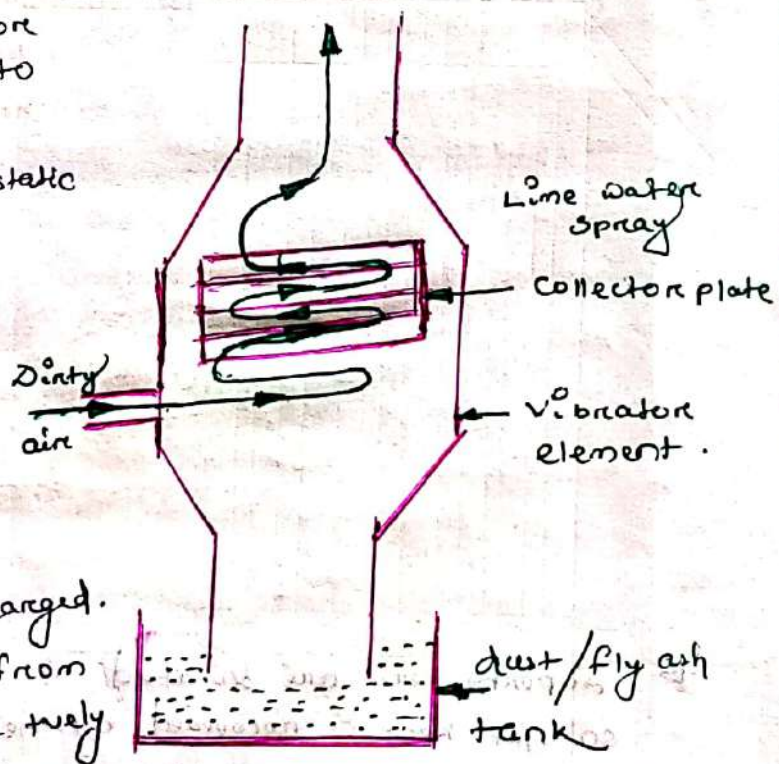 ore
to
static
Lime water
spray
Collectore plate
Dirty
air
Vibratore
element.
arged.
from
tvely
dust/fly ash
tank